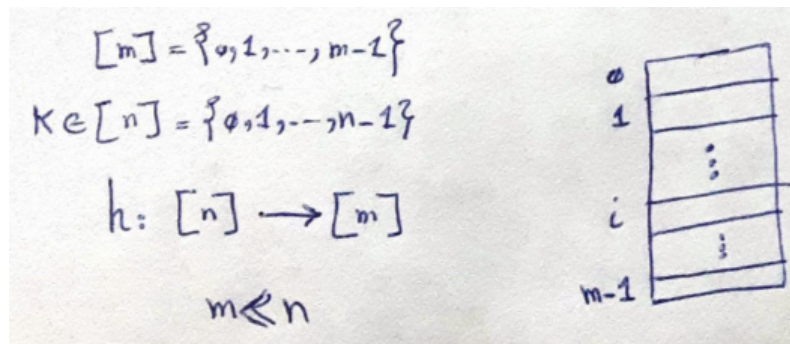 [m] = {0,1,---,m-1}
K ∈ [n] = {0,1,--,n-1}
h: [n] → [m]
m ≪ n
0
1
⋮
i
⋮
m-1